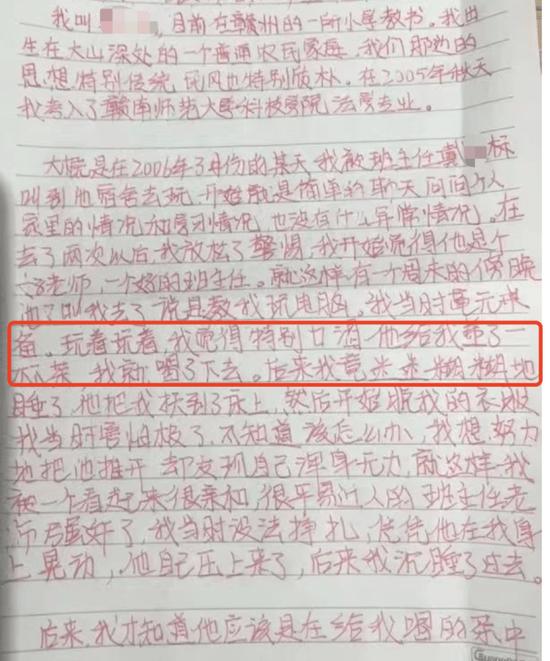 我叫 ，目前在赣州的一所小学教书。我出
生在大山深处的一个普通农民家庭，我们那边的
思想特别传统，民风也特别质朴。在2005年秋天
我考入了赣南师范大学科技学院法学专业。
大概是在2006年3月份的某天，我被班主任 标
叫到他宿舍去玩，开始就是简单的聊天问问个人
家里的情况和学习情况，也没有什么异常情况。在
去了两次以后，我放松了警惕，我开始觉得他是个
好老师，一个好的班主任。就这样有一个周末的傍晚
他又叫我去了，说是教我玩电脑。我当时毫无戒
备。玩着玩着，我觉得特别口渴，他给我 了一
杯茶，我就喝了下去。后来我竟迷迷糊糊地
睡了，他把我扶到了床上，然后开始脱我的衣服
我当时害怕极了，不知道该怎么办，我想努力
地把他推开，却发现自己浑身无力，就这样我
被一个看起来很亲和，很平易近人的班主任老
师强奸了，我当时没法挣扎，任凭他在我身
上晃动，他自己压上来了，后来我沉睡了过去。
后来，我才知道他应该是在给我喝的茶中